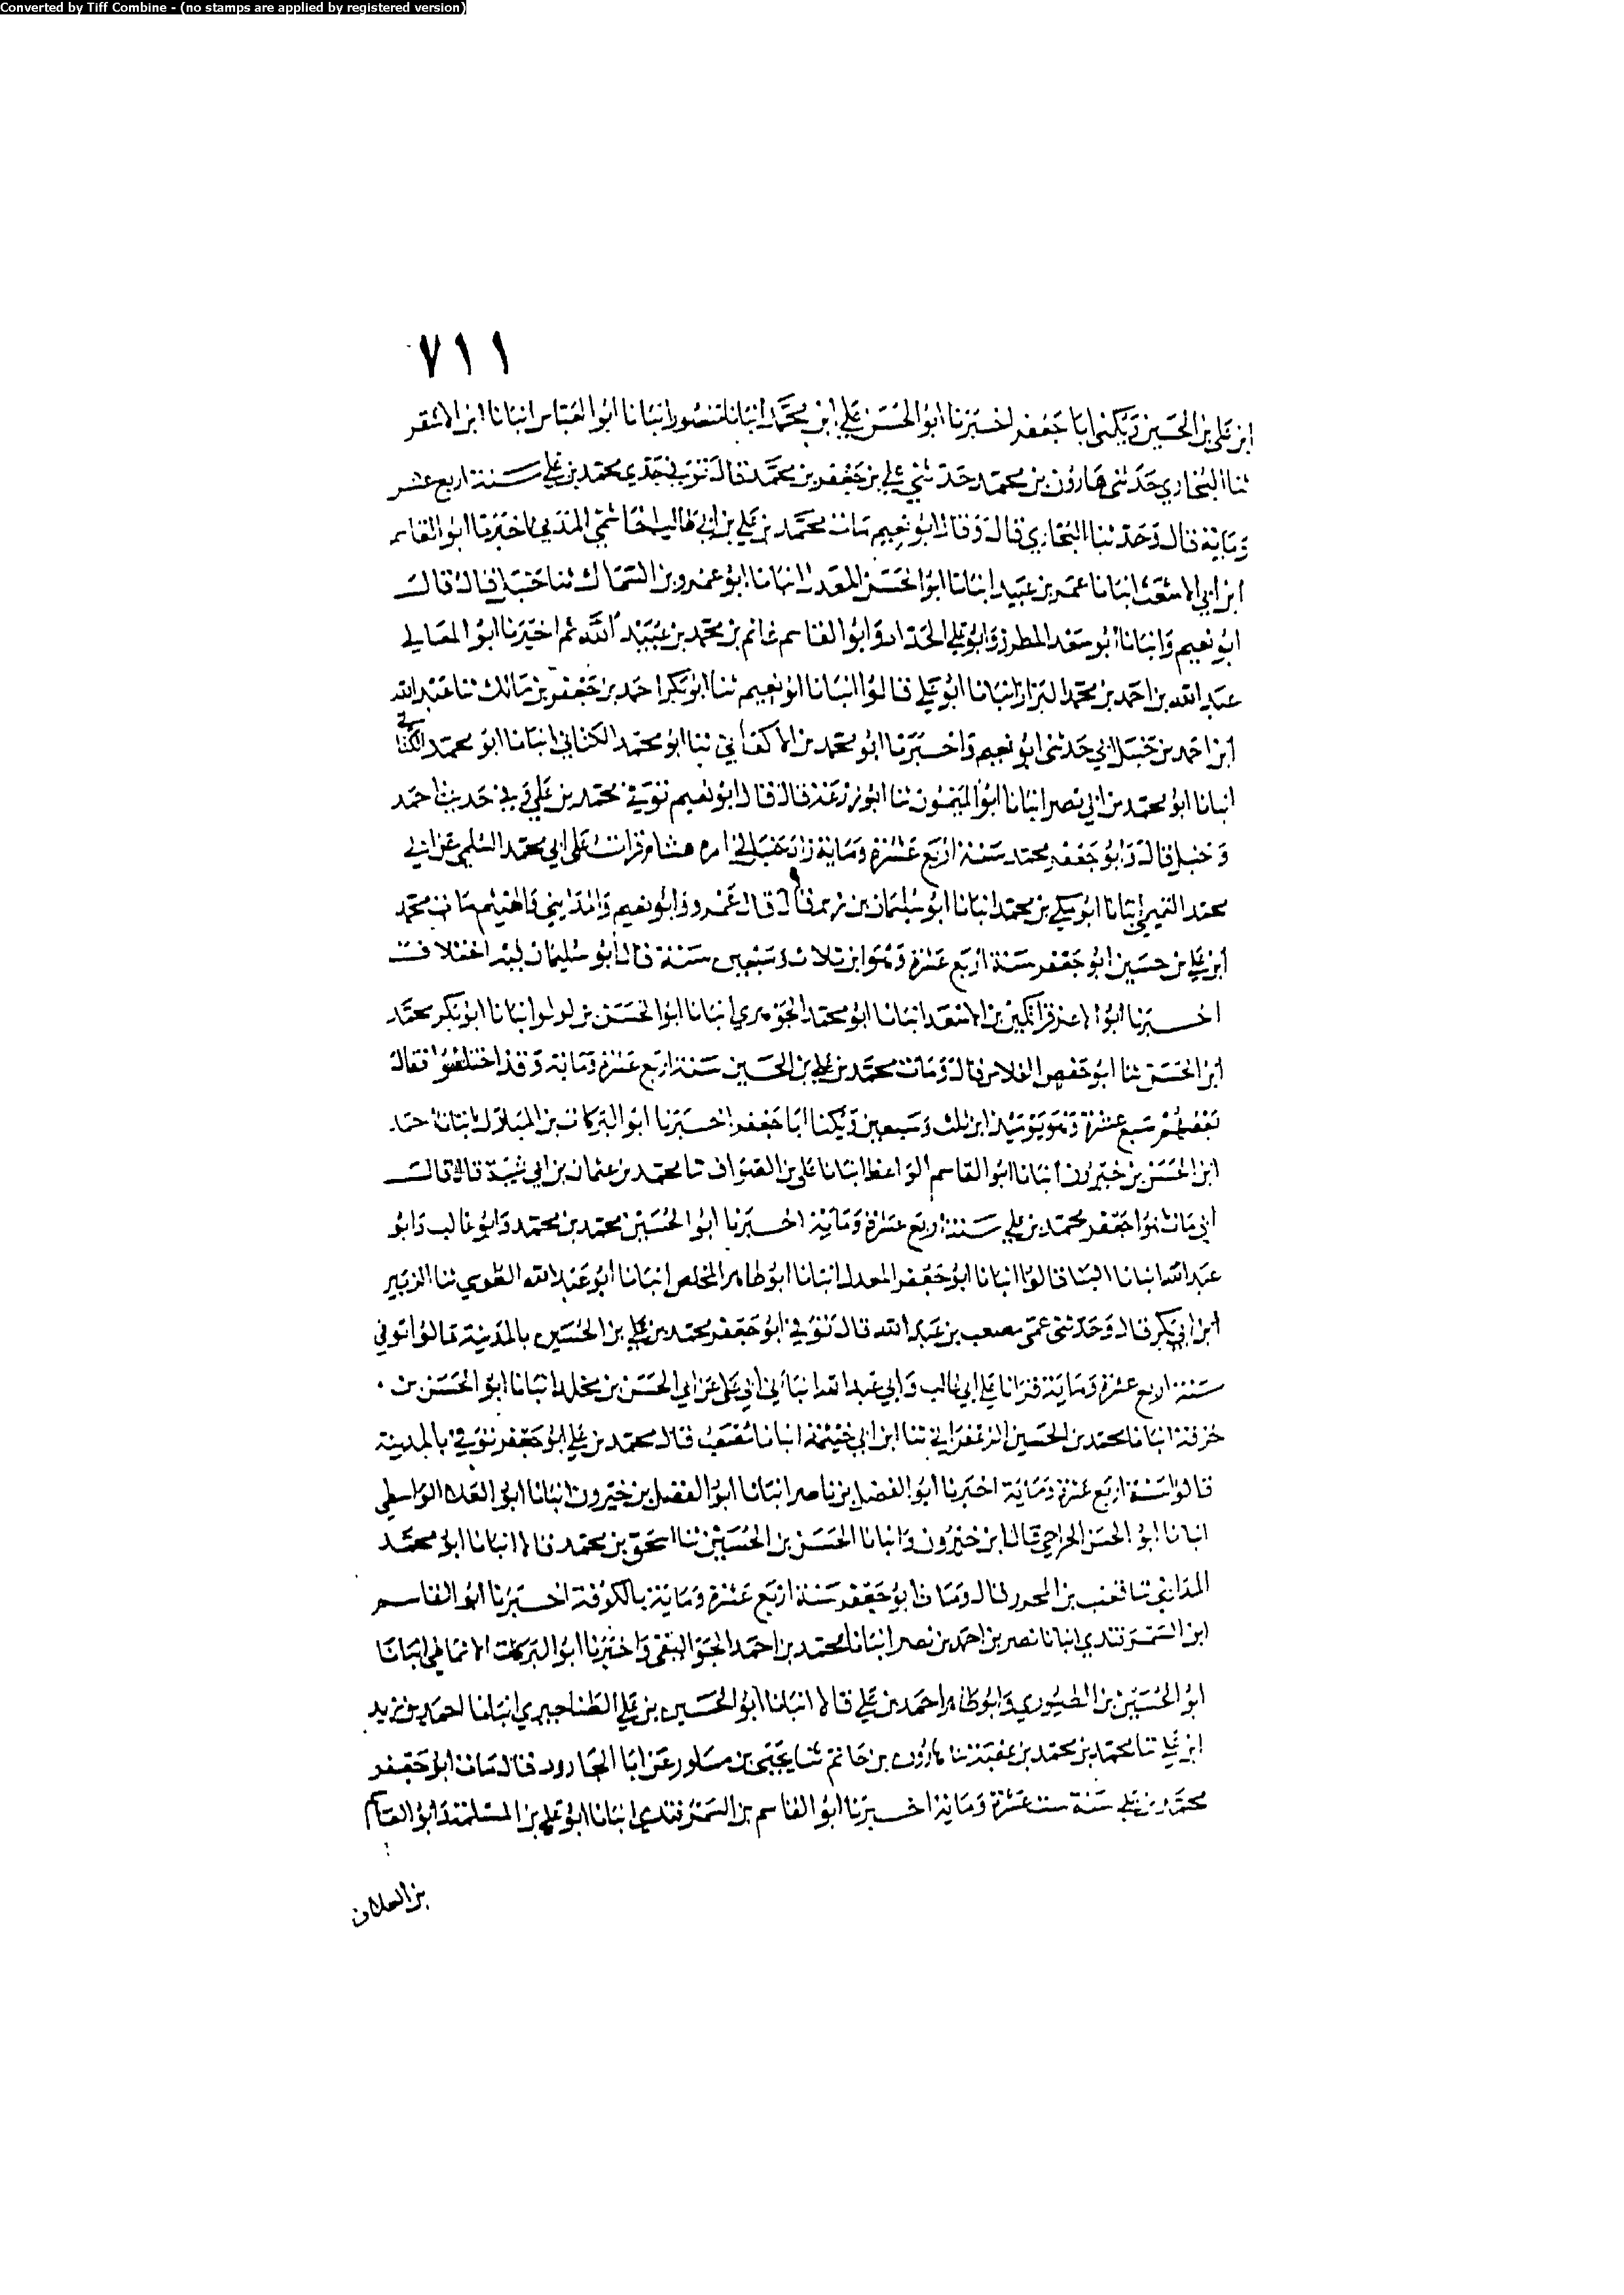 Converted by Tiff Combine - (no stamps are applied by registered version)
٧١١
ابن علي بن الحسين ويكنى ابا جعفر اخبرنا ابو الحسن علي ابن محمد انبانا منصور انبانا ابو العباس انبانا ابن الاشقر
ثنا البخاري حدثني هارون بن محمد حدثني علي بن جعفر بن محمد قال توفي جدي محمد بن علي سنة اربع عشر
ومائة قال وحدثنا البخاري قال وقال ابو نعيم مات محمد بن علي بن ابي طالب الهاشمي المدني اخبرنا ابو القاسم
ابن ابي الاشعث انبانا عمر بن عبيد انبانا ابو الحسن المعدل انبانا ابو عمرو بن السماك ثنا حنبل قال قال
ابو نعيم وانبانا ابو سعد المطرز وابو علي الحداد وابو القاسم غانم بن محمد بن عبيد الله ثم اخبرنا ابو المعالي
عبد الله بن احمد بن محمد البزاز انبانا ابو علي قالوا انبانا ابو نعيم ثنا ابو بكر احمد بن جعفر بن مالك ثنا عبد الله
ابن احمد بن حنبل ابي حدثني ابو نعيم واخبرنا ابو محمد بن الاكفاني ثنا ابو محمد الكتاني انبانا ابو محمد
انبانا ابو محمد بن ابي نصر انبانا ابو الميمون ثنا ابو زرعة قال قال ابو نعيم توفي محمد بن علي وفي حديث احمد
وحنبل قال وابو جعفر محمد سنة اربع عشرة ومائة زاد حنبل في امره هشام قرات على ابي محمد السلمي عن ابي
محمد التميمي انبانا ابو مكي بن محمد انبانا ابو سليمان بن زبر قال قال عمرو وابو نعيم والمدايني والهيثم مات محمد
ابن علي بن حسين ابو جعفر سنة اربع عشرة وهو ابن ثلاث وسبعين سنة قال ابو سليمان فيه اختلاف
اخبرنا ابو الاعز قراتكين بن الاسعد انبانا ابو محمد الجوهري انبانا ابو الحسن بن لولو انبانا ابو بكر محمد
ابن الحسن ثنا ابو حفص الفلاس قال ومات محمد بن علي بن الحسين سنة اربع عشرة ومائة وقد اختلفوا فقال
بعضهم سبع عشرة وهو يومئذ ابن ثلث وسبعين ويكنا ابا جعفر اخبرنا ابو البركات بن المبارك انبانا احمد
ابن الحسن بن خيرون انبانا ابو القاسم الواعظ انبانا علي بن الصواف ثنا محمد بن عثمان بن ابي شيبة قال قال
ابي مات ابو جعفر محمد بن علي سنة اربع عشرة ومائة اخبرنا ابو الحسين محمد بن محمد وابو غالب وابو
عبد الله انبانا البنا قالوا انبانا ابو جعفر المعدل انبانا ابو طاهر المخلص انبانا ابو عبد الله الطوسي ثنا الزبير
ابن ابي بكر قال وحدثني عمي مصعب بن عبد الله قال توفي ابو جعفر محمد بن علي بن الحسين بالمدينة قالوا توفي
سنة اربع عشرة ومائة قرانا علي ابي غالب وابي عبد الله انبا ابي ابي علي عن ابي الحسن بن مخلد انبانا ابو الحسن بن
خزفة انبانا محمد بن الحسين الزعفراني ثنا ابن ابي خيثمة انبانا مصعب قال محمد بن علي ابو جعفر توفي بالمدينة
قالوا سنة اربع عشرة ومائة اخبرنا ابو الفضل بن ناصر انبانا ابو الفضل بن خيرون انبانا ابو العلاء الواسطي
انبانا ابو الحسن الجراحي قال ابن خيرون وانبانا الحسن بن الحسين ثنا اسحق بن محمد قالا انبانا ابو محمد
المدايني ثنا قعنب بن المحرر قال ومات ابو جعفر سنة اربع عشرة ومائة بالكوفة اخبرنا ابو القاسم
ابن السمرقندي انبانا نصر بن احمد بن نصر انبانا محمد بن احمد الجواليقي واخبرنا ابو البركات الانماطي انبانا
ابو الحسين بن الطيوري وابو طاهر احمد بن علي قالا انبانا ابو الحسين بن علي الطناجيري انبانا احمد بن زيد
ابن علي ثنا محمد بن محمد بن عقبة ثنا هارون بن حاتم ثنا يحيى بن مساور عن ابا الجارود قال مات ابو جعفر
محمد بن علي سنة ست عشرة ومائة اخبرنا ابو القاسم بن السمرقندي انبانا ابو علي بن المسلمة وابو القاسم
بن العلاف